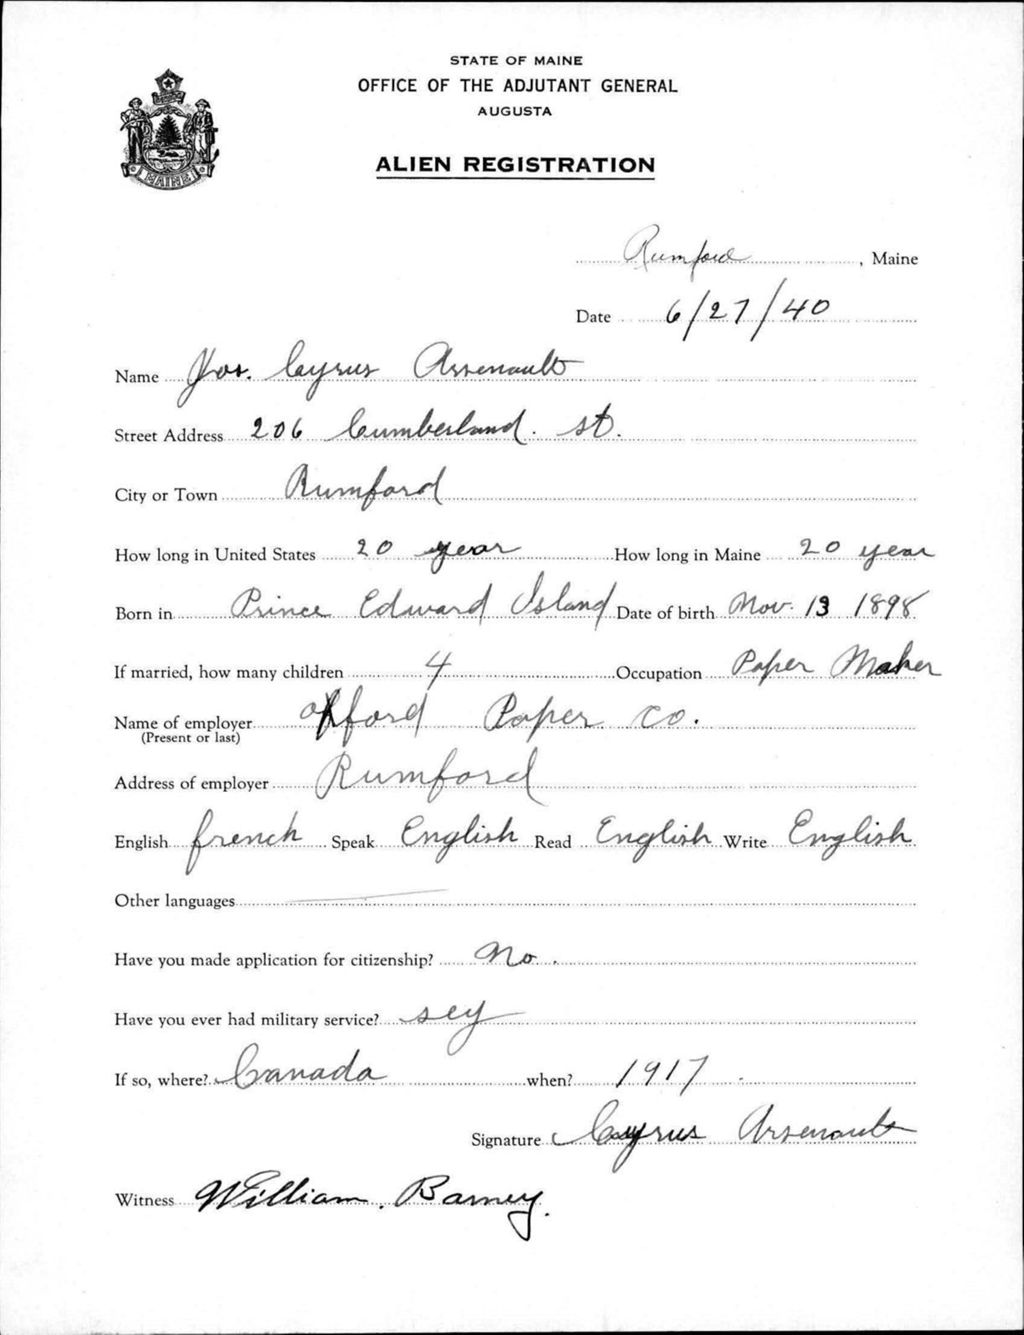 STATE OF MAINE
OFFICE OF THE ADJUTANT GENERAL
AUGUSTA
ALIEN REGISTRATION
MAINE
Rumford, Maine
Date 6/27/40
Name Jos. Cyrus Arsenault
Street Address 206 Cumberland. st.
City or Town Rumford
How long in United States 20 year How long in Maine 20 year
Born in Prince Edward Island Date of birth Nov. 13 1898
If married, how many children 4 Occupation Paper Maker
Name of employer Oxford Paper Co.
(Present or last)
Address of employer Rumford
English french Speak English Read English Write English
Other languages
Have you made application for citizenship? No.
Have you ever had military service? sey
If so, where? Canada when? 1917
Signature Cyrus Arsenault
Witness William. Barney.